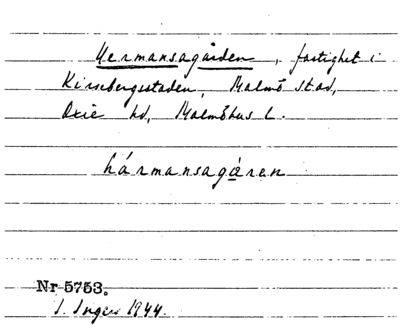 Hermansagården, fastighet i
Kirsebergsstaden, Malmö stad,
Oxie hd, Malmöhus l.
hármansagáren
Nr 5753.
I. Ingers 1944.